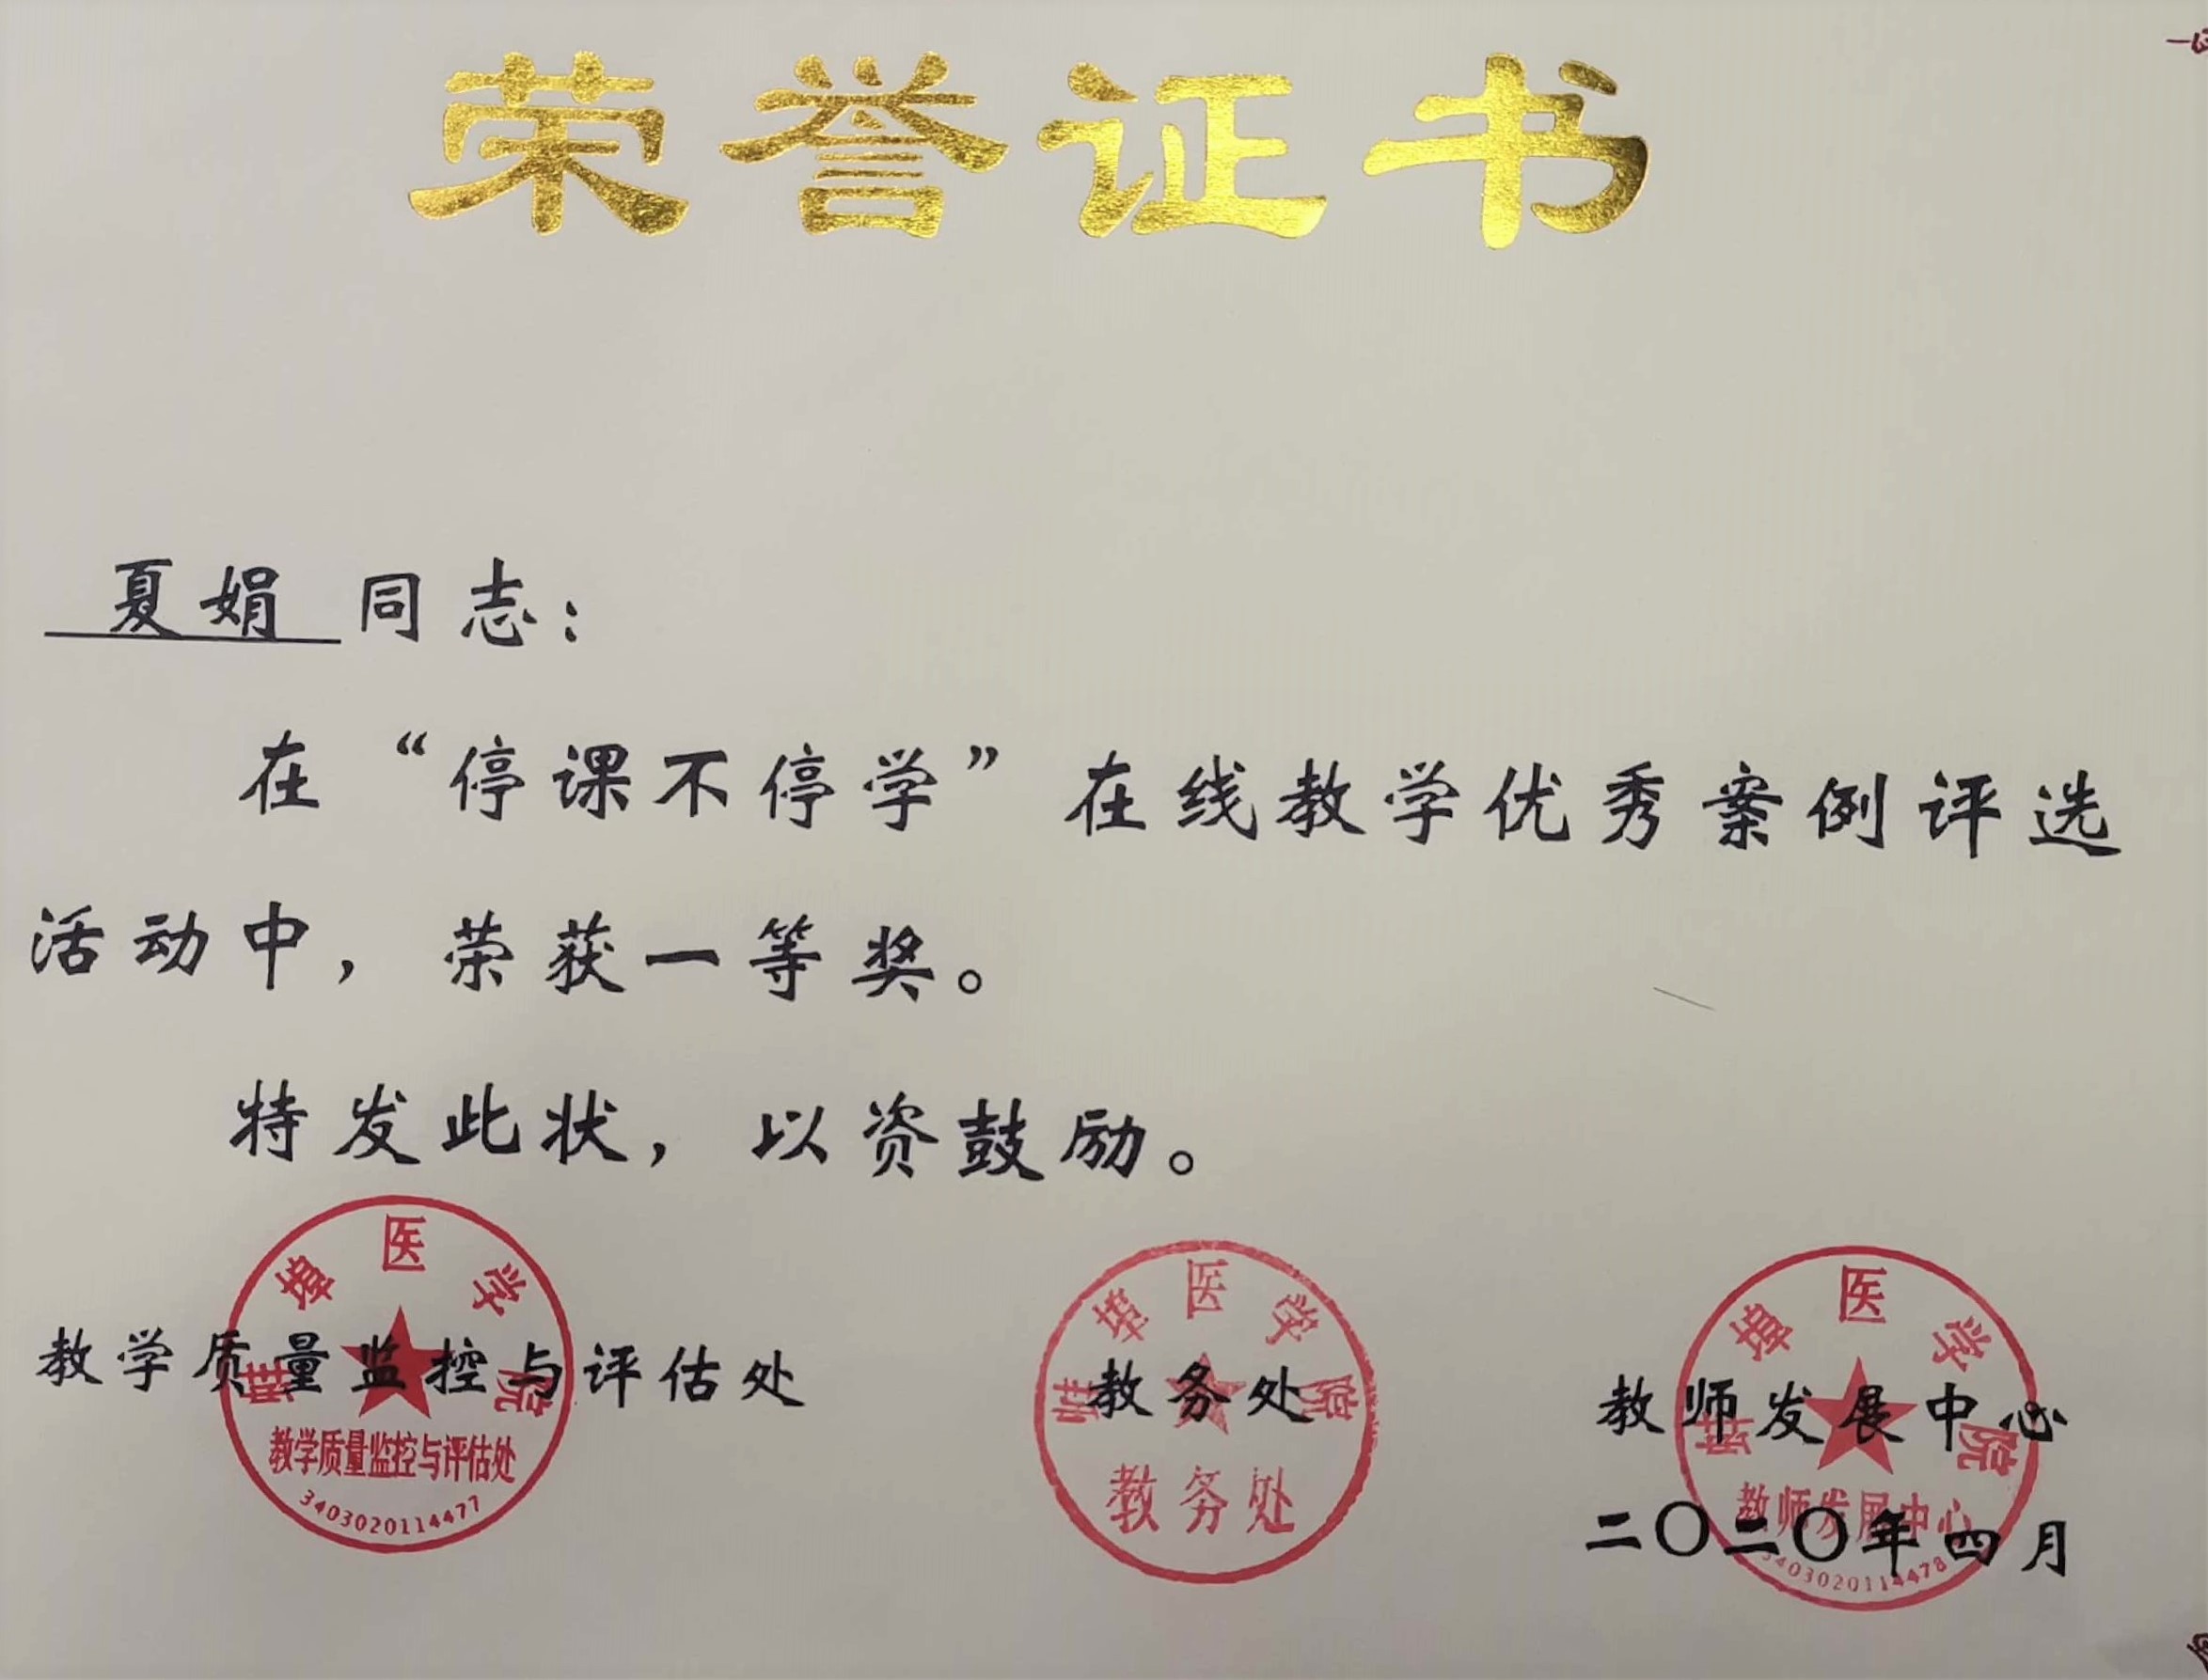 荣誉证书
夏娟 同志：
在“停课不停学”在线教学优秀案例评选
活动中，荣获一等奖。
特发此状，以资鼓励。
教学质量监控与评估处
教务处
教师发展中心
二〇二〇年四月
蚌埠医学院
教学质量监控与评估处
3403020114477
蚌埠医学院
教务处
蚌埠医学院
教师发展中心
3403020114478